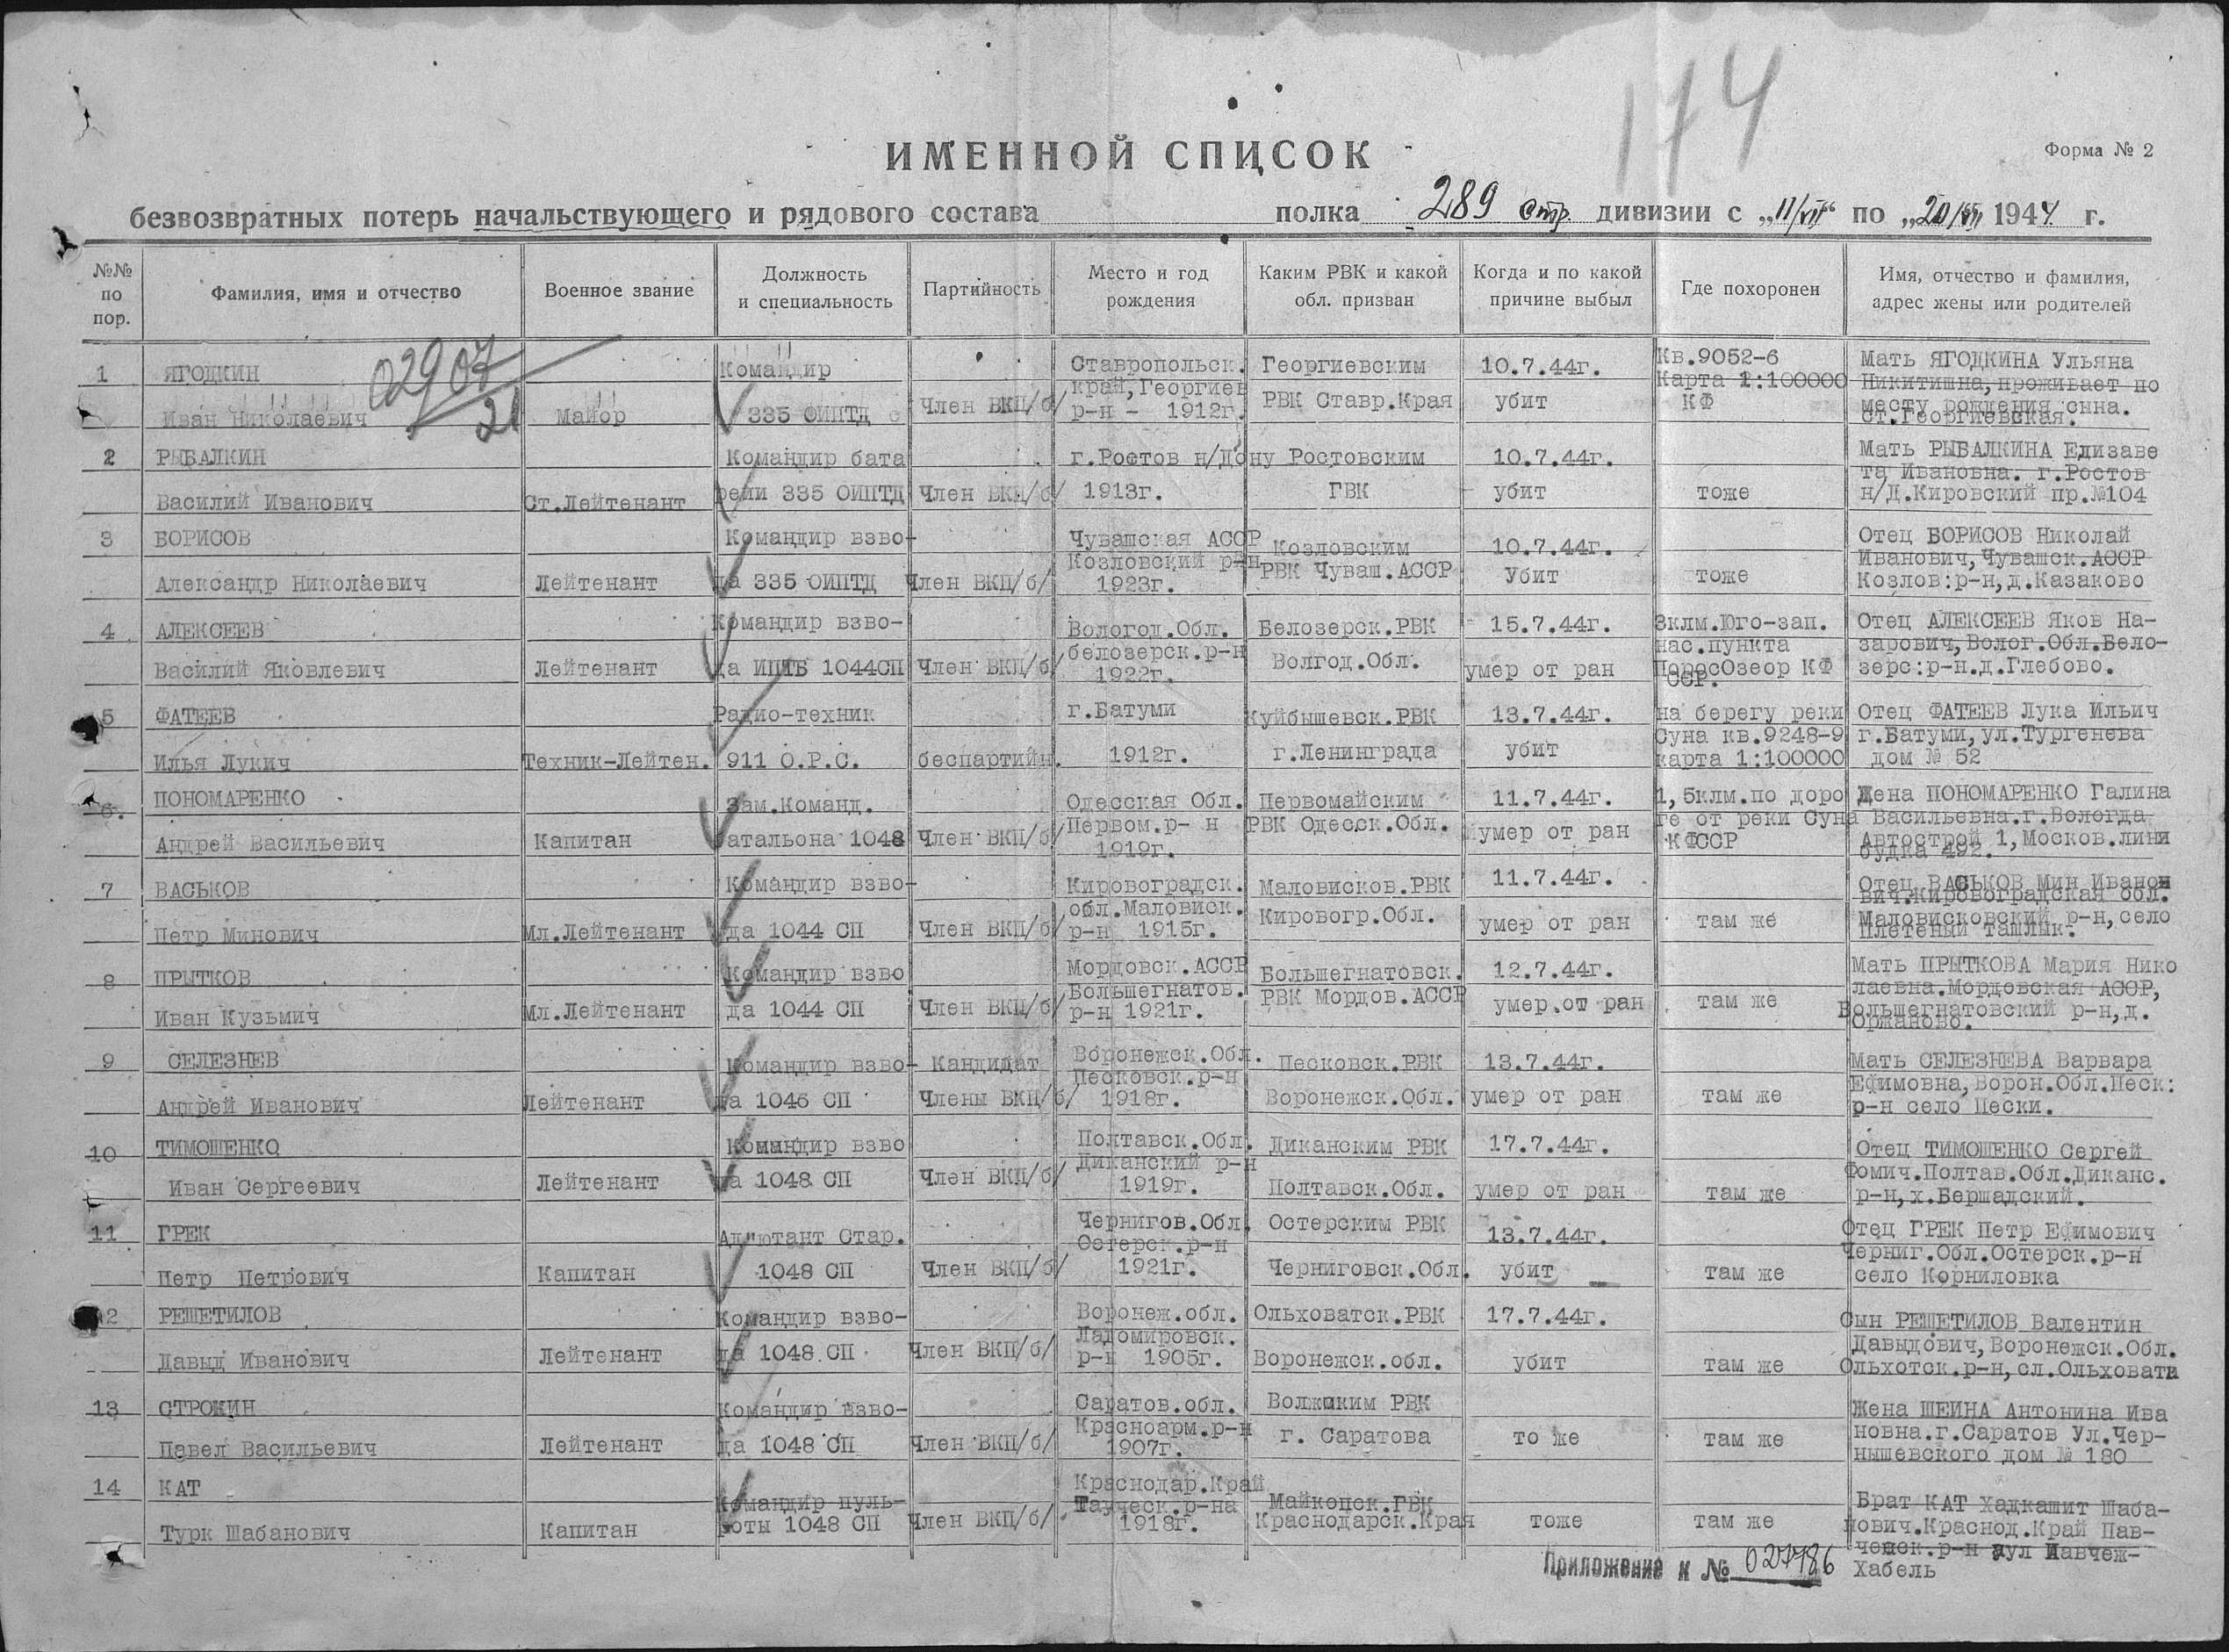 174
ИМЕННОЙ СПИСОК
Форма № 2
безвозвратных потерь начальствующего и рядового состава полка 289 стр. дивизии с „11/VII“ по „20/VII 1944 г.
№№ по пор.
Фамилия, имя и отчество
Военное звание
Должность и специальность
Партийность
Место и год рождения
Каким РВК и какой обл. призван
Когда и по какой причине выбыл
Где похоронен
Имя, отчество и фамилия, адрес жены или родителей
02907
21
1 ЯГОДКИН Командир Ставропольск. Георгиевским 10.7.44г. Кв.9052-6 Мать ЯГОДКИНА Ульяна
край,Георгиев Карта 1:100000 Никитишна,проживает по
Иван Николаевич Майор 335 ОИПТД Член ВКП/б/ р-н - 1912г. РВК Ставр.Края убит КФ месту рождения сына.
ст.Георгиевская.
2 РЫБАЛКИН Командир бата г.Ростов н/Дону Ростовским 10.7.44г. Мать РЫБАЛКИНА Елизаве
та Ивановна. г.Ростов
Василий Иванович Ст.Лейтенант реии 335 ОИПТД Член ВКП/б/ 1913г. ГВК убит тоже н/Д.Кировский пр.№104
3 БОРИСОВ Командир взво- Чувашская АССР Козловским 10.7.44г. Отец БОРИСОВ Николай
Козловский р-н Иванович,Чувашск.АССР
Александр Николаевич Лейтенант да 335 ОИПТД Член ВКП/б/ 1923г. РВК Чуваш.АССР Убит тоже Козлов:р-н,д.Казаково
4 АЛЕКСЕЕВ Командир взво- Вологод.Обл. Белозерск.РВК 15.7.44г. 3клм.Юго-зап. Отец АЛЕКСЕЕВ Яков На-
белозерск.р-н нас.пункта зарович,Волог.Обл.Бело-
Василий Яковлевич Лейтенант да ИПТБ 1044СП Член ВКП/б/ 1922г. Волгод.Обл. умер от ран ПоросОзеор КФ зерс:р-н.д.Глебово.
ССР.
5 ФАТЕЕВ Радио-техник г.Батуми Куйбышевск.РВК 13.7.44г. на берегу реки Отец ФАТЕЕВ Лука Ильич
Суна кв.9248-9 г.Батуми,ул.Тургенева
Илья Лукич Техник-Лейтен. 911 О.Р.С. беспартийн. 1912г. г.Ленинграда убит карта 1:100000 дом № 52
6. ПОНОМАРЕНКО Зам.Команд. Одесская Обл. Первомайским 11.7.44г. 1,5клм.по доро Жена ПОНОМАРЕНКО Галина
Первом.р- н ге от реки Суна Васильевна.г.Вологда
Андрей Васильевич Капитан батальона 1048 Член ВКП/б/ 1919г. РВК Одесск.Обл. умер от ран КФССР Автострой 1,Москов.линя
будка 492.
7 ВАСЬКОВ Командир взво- Кировоградск. Маловисков.РВК 11.7.44г. Отец ВАСЬКОВ Мин Иванов
обл.Маловиск. вич.Кировоградская обл.
Петр Минович Мл.Лейтенант да 1044 СП Член ВКП/б/ р-н 1915г. Кировогр.Обл. умер от ран там же Маловисковский р-н,село
Плетеный Ташлык.
8 ПРЫТКОВ Командир взво Мордовск.АССР Большегнатовск. 12.7.44г. Мать ПРЫТКОВА Мария Нико
Большегнатов. лаевна.Мордовская АССР,
Иван Кузьмич Мл.Лейтенант да 1044 СП Член ВКП/б/ р-н 1921г. РВК Мордов.АССР умер.от ран там же Большегнатовский р-н,д.
Оржаново.
9 СЕЛЕЗНЕВ Командир взво- Кандидат Воронежск.Обл. Песковск.РВК 13.7.44г. Мать СЕЛЕЗНЕВА Варвара
Песковск.р-н Ефимовна,Ворон.Обл.Песк:
Андрей Иванович Лейтенант да 1046 СП Члены ВКП/б/ 1918г. Воронежск.Обл. умер от ран там же р-н село Пески.
10 ТИМОШЕНКО Командир взво Полтавск.Обл. Диканским РВК 17.7.44г. Отец ТИМОШЕНКО Сергей
Диканский р-н Фомич.Полтав.Обл.Диканс.
Иван Сергеевич Лейтенант да 1048 СП Член ВКП/б/ 1919г. Полтавск.Обл. умер от ран там же р-н,х.Бершадский.
11 ГРЕК Ад"ютант Стар. Чернигов.Обл. Остерским РВК 13.7.44г. Отец ГРЕК Петр Ефимович
Остерск.р-н Черниг.Обл.Остерск.р-н
Петр Петрович Капитан 1048 СП Член ВКП/б/ 1921г. Черниговск.Обл. убит там же село Корниловка
12 РЕШЕТИЛОВ Командир взво- Воронеж.обл. Ольховатск.РВК 17.7.44г. Сын РЕШЕТИЛОВ Валентин
Ладомировск. Давыдович,Воронежск.Обл.
Давыд Иванович Лейтенант да 1048 СП Член ВКП/б/ р-н 1905г. Воронежск.обл. убит там же Ольхотск.р-н,сл.Ольховата
13 СТРОКИН Командир взво- Саратов.обл. Волжским РВК Жена ШЕИНА Антонина Ива
Красноарм.р-н новна.г.Саратов Ул.Чер-
Павел Васильевич Лейтенант да 1048 СП Член ВКП/б/ 1907г. г. Саратова то же там же нышевского дом № 180
14 КАТ Командир пуль- Краснодар.Край Майкопск.ГВК Брат КАТ Хаджашит Шаба-
Тауческ.р-на
Турк Шабанович Капитан роты 1048 СП Член ВКП/б/ 1918г. Краснодарск.Края тоже там же нович.Краснод.Край Пав-
ческ.р-н аул Павчеж-
Хабель
Приложение к № 027786